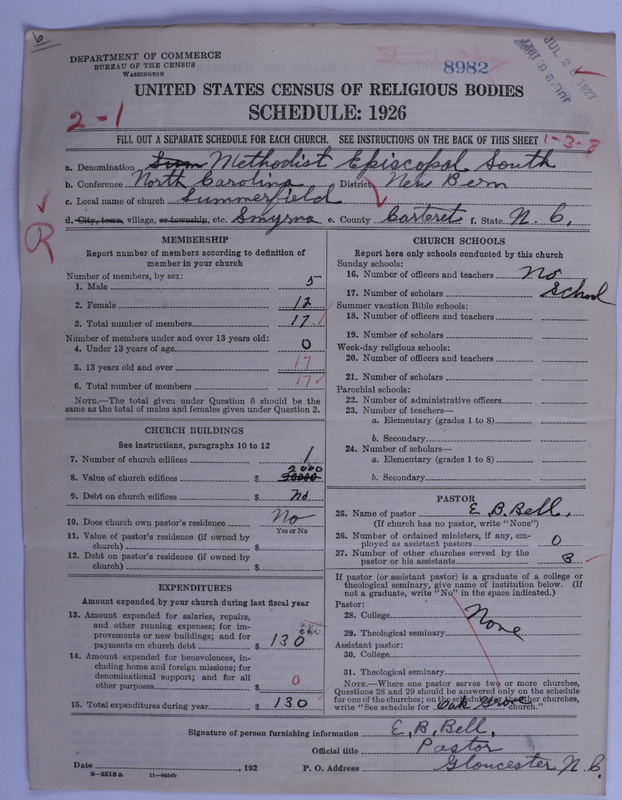 6
DEPARTMENT OF COMMERCE
BUREAU OF THE CENSUS
WASHINGTON
8982
JUL 2 1927
UNITED STATES CENSUS OF RELIGIOUS BODIES
SCHEDULE: 1926
2-1
FILL OUT A SEPARATE SCHEDULE FOR EACH CHURCH. SEE INSTRUCTIONS ON THE BACK OF THIS SHEET
1-3-3
a. Denomination Methodist Episcopal South
b. Conference North Carolina District New Bern
c. Local name of church Summerfield
d. City, town, village, or township, etc. Smyrna e. County Carteret f. State N. C.
R
MEMBERSHIP
Report number of members according to definition of
member in your church
Number of members, by sex:
1. Male 5
2. Female 12
3. Total number of members 17
Number of members under and over 13 years old:
4. Under 13 years of age 0
5. 13 years old and over 17
6. Total number of members 17
NOTE.—The total given under Question 6 should be the
same as the total of males and females given under Question 3.
CHURCH BUILDINGS
See instructions, paragraphs 10 to 12
7. Number of church edifices 1
8. Value of church edifices $ 2000
9. Debt on church edifices $ no
10. Does church own pastor's residence No
Yes or No
11. Value of pastor's residence (if owned by
church) $
12. Debt on pastor's residence (if owned by
church) $
EXPENDITURES
Amount expended by your church during last fiscal year
13. Amount expended for salaries, repairs,
and other running expenses; for im-
provements or new buildings; and for
payments on church debt $ 130
14. Amount expended for benevolences, in-
cluding home and foreign missions; for
denominational support; and for all
other purposes $ 0
15. Total expenditures during year $ 130
CHURCH SCHOOLS
Report here only schools conducted by this church
Sunday schools:
16. Number of officers and teachers No
17. Number of scholars School
Summer vacation Bible schools:
18. Number of officers and teachers
19. Number of scholars
Week-day religious schools:
20. Number of officers and teachers
21. Number of scholars
Parochial schools:
22. Number of administrative officers
23. Number of teachers—
a. Elementary (grades 1 to 8)
b. Secondary
24. Number of scholars—
a. Elementary (grades 1 to 8)
b. Secondary
PASTOR
25. Name of pastor E. B. Bell,
(If church has no pastor, write "None")
26. Number of ordained ministers, if any, em-
ployed as assistant pastors 0
27. Number of other churches served by the
pastor or his assistants 8
If pastor (or assistant pastor) is a graduate of a college or
theological seminary, give name of institution below. (If
not a graduate, write "No" in the space indicated.)
Pastor:
28. College None
29. Theological seminary
Assistant pastor:
30. College
31. Theological seminary
NOTE.—Where one pastor serves two or more churches,
Questions 28 and 29 should be answered only on the schedule
for one of the churches; on the schedule for the other churches,
write "See schedule for Oak Grove church."
Signature of person furnishing information E. B. Bell,
Official title Pastor
Date , 192 P. O. Address Gloucester N. C.
8-5518 a